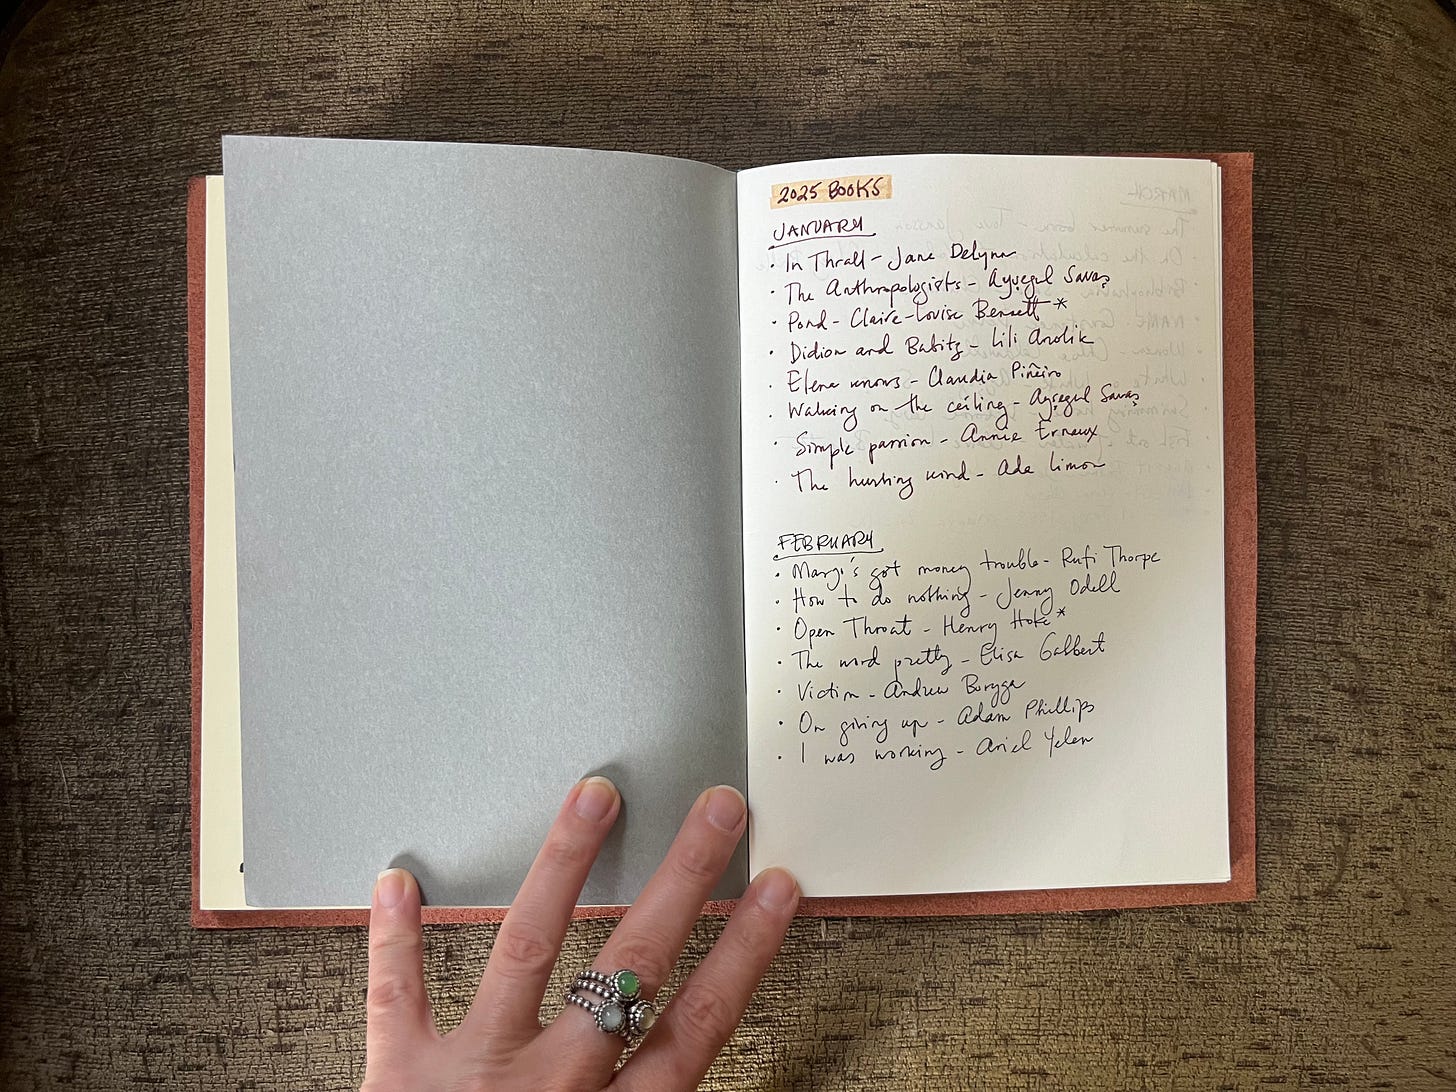 2025 BOOKS
JANUARY
· In Thrall - Jane DeLynn
· The Anthropologists - Ayşegül Savaş
· Pond - Claire-Louise Bennett *
· Didion and Babitz - Lili Anolik
· Elena knows - Claudia Piñeiro
· Walking on the ceiling - Ayşegül Savaş
· Simple passion - Annie Ernaux
· The hurting kind - Ada Limon
FEBRUARY
· Margo's got money trouble - Rufi Thorpe
· How to do nothing - Jenny Odell
· Open Throat - Henry Hoke *
· The word pretty - Elisa Gabbert
· Victim - Andrew Boryga
· On giving up - Adam Phillips
· I was working - Ariel Yelen
MARCH
The summer book - Tove Jansson
On the calculation